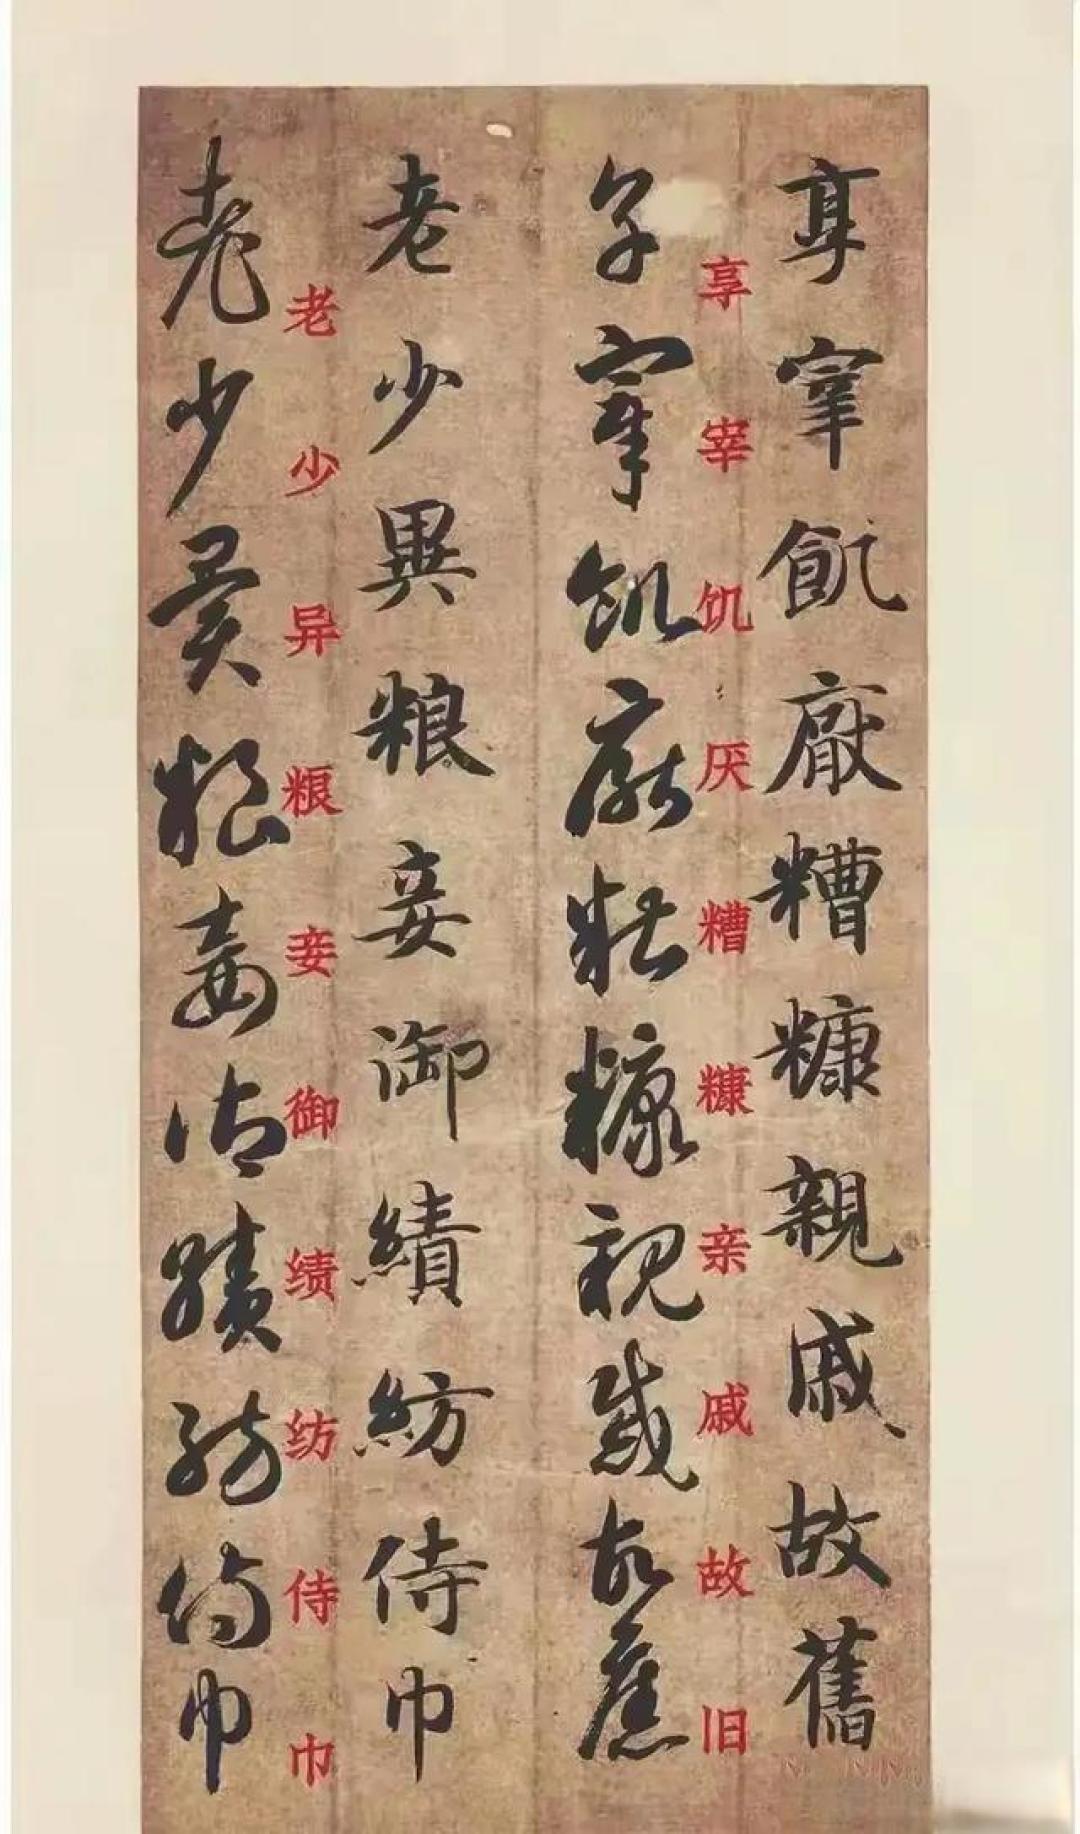 享宰飢厭糟糠親戚故舊
享宰饥厌糟糠亲戚故旧
享宰飢厭糟糠親戚故舊
老少異粮妾御績紡侍巾
老少异粮妾御绩纺侍巾
老少異粮妾御績紡侍巾